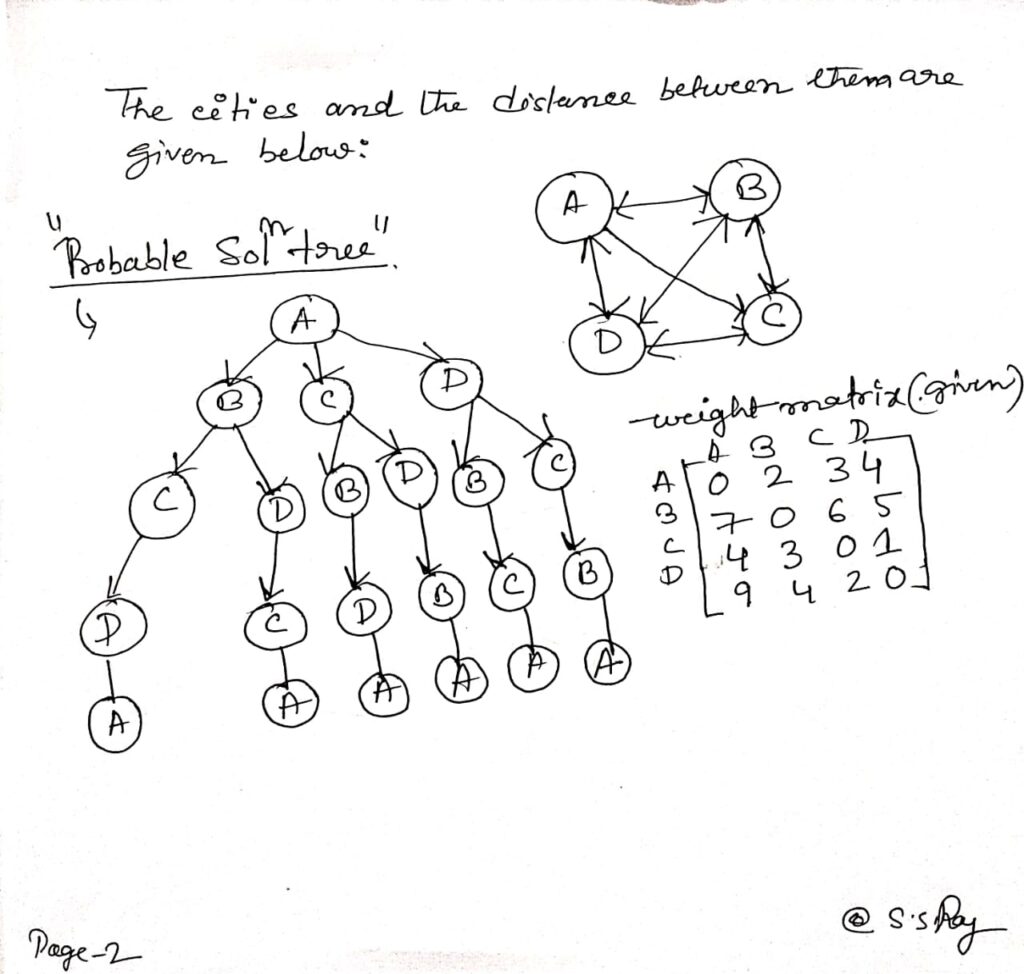 The cities and the distance between them are
given below:
"Probable Solⁿ tree".
A B
D C
A
B C D
C D B D B C
D C D B C B
A A A A A A
weight matrix (given)
A B C D
A 0 2 3 4
B 7 0 6 5
C 4 3 0 1
D 9 4 2 0
Page-2
@ S.S Ray